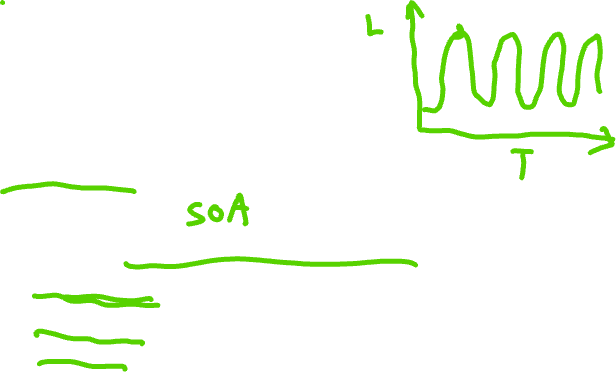 L
T
SOA